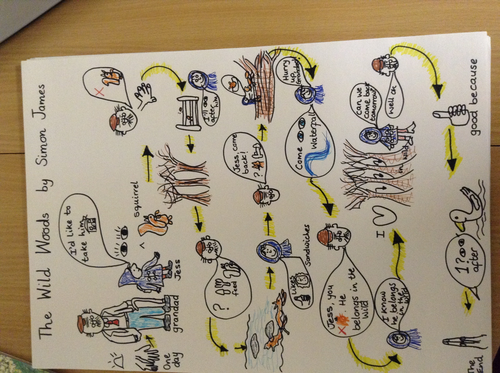 The Wild Woods by Simon James
One day
grandad
Jess
I'd like to
take him
squirrel
after
him
?
food
? 
Jess, come
back!
Hurry
up,
Grandad
Sandwiches
Come
waterfall
Jess, you
X He
belongs in the
wild
I know
he belongs
in the
wild
I
can we
come back
tomorrow?
well ok
good because
1?
after
The End